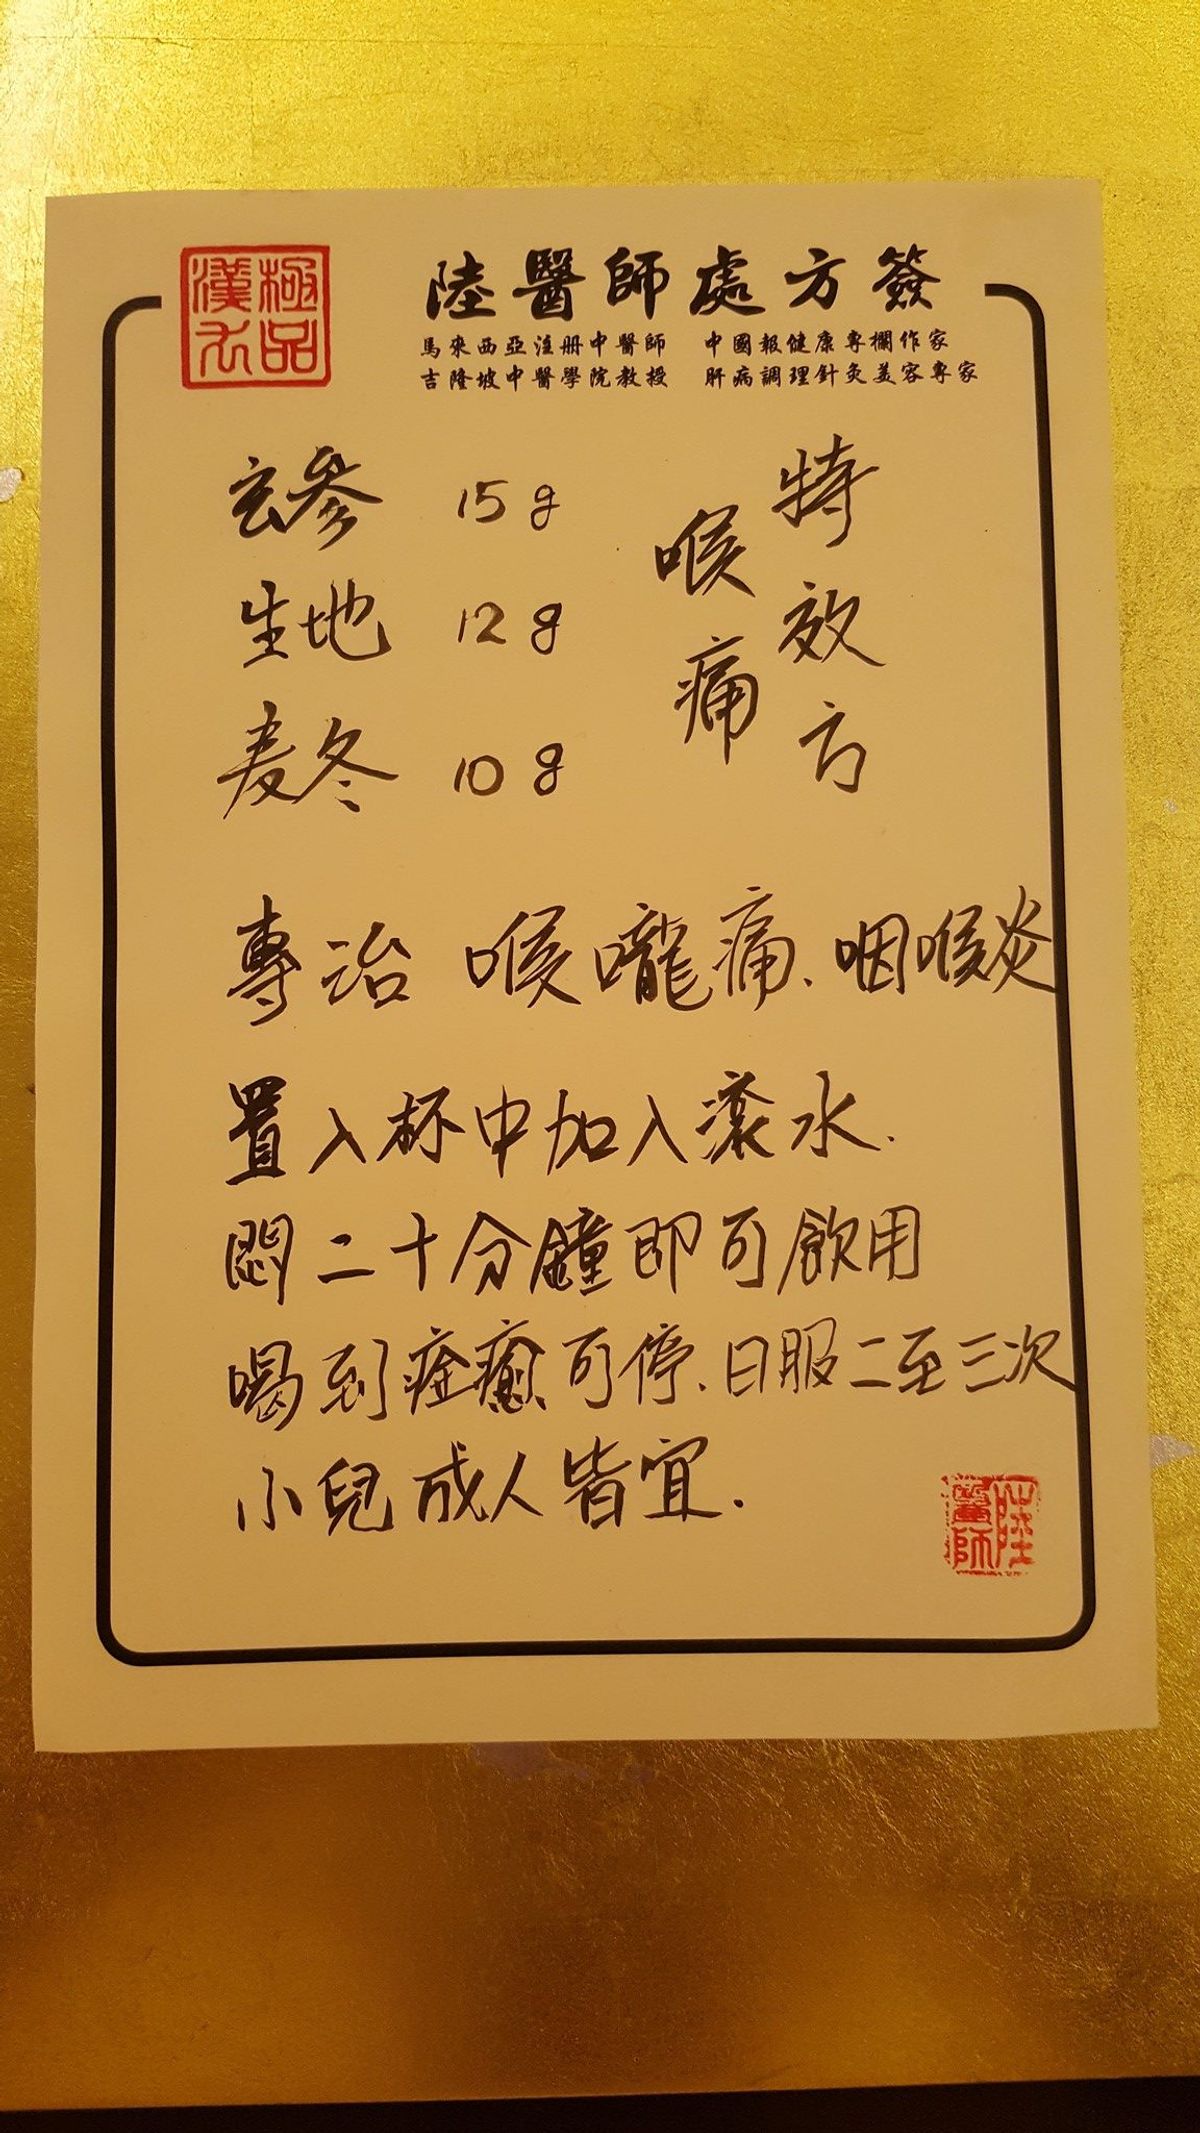 極品
漢方
陸醫師處方簽
馬來西亞注册中醫師 中國報健康專欄作家
吉隆坡中醫學院教授 肝病調理針灸美容專家
特效方
喉痛
玄參 15g
生地 12g
麦冬 10g
專治 喉嚨痛、咽喉炎
置入杯中加入滾水.
悶二十分鐘即可飲用
喝到痊癒可停、日服二至三次
小兒成人皆宜.
陸醫師